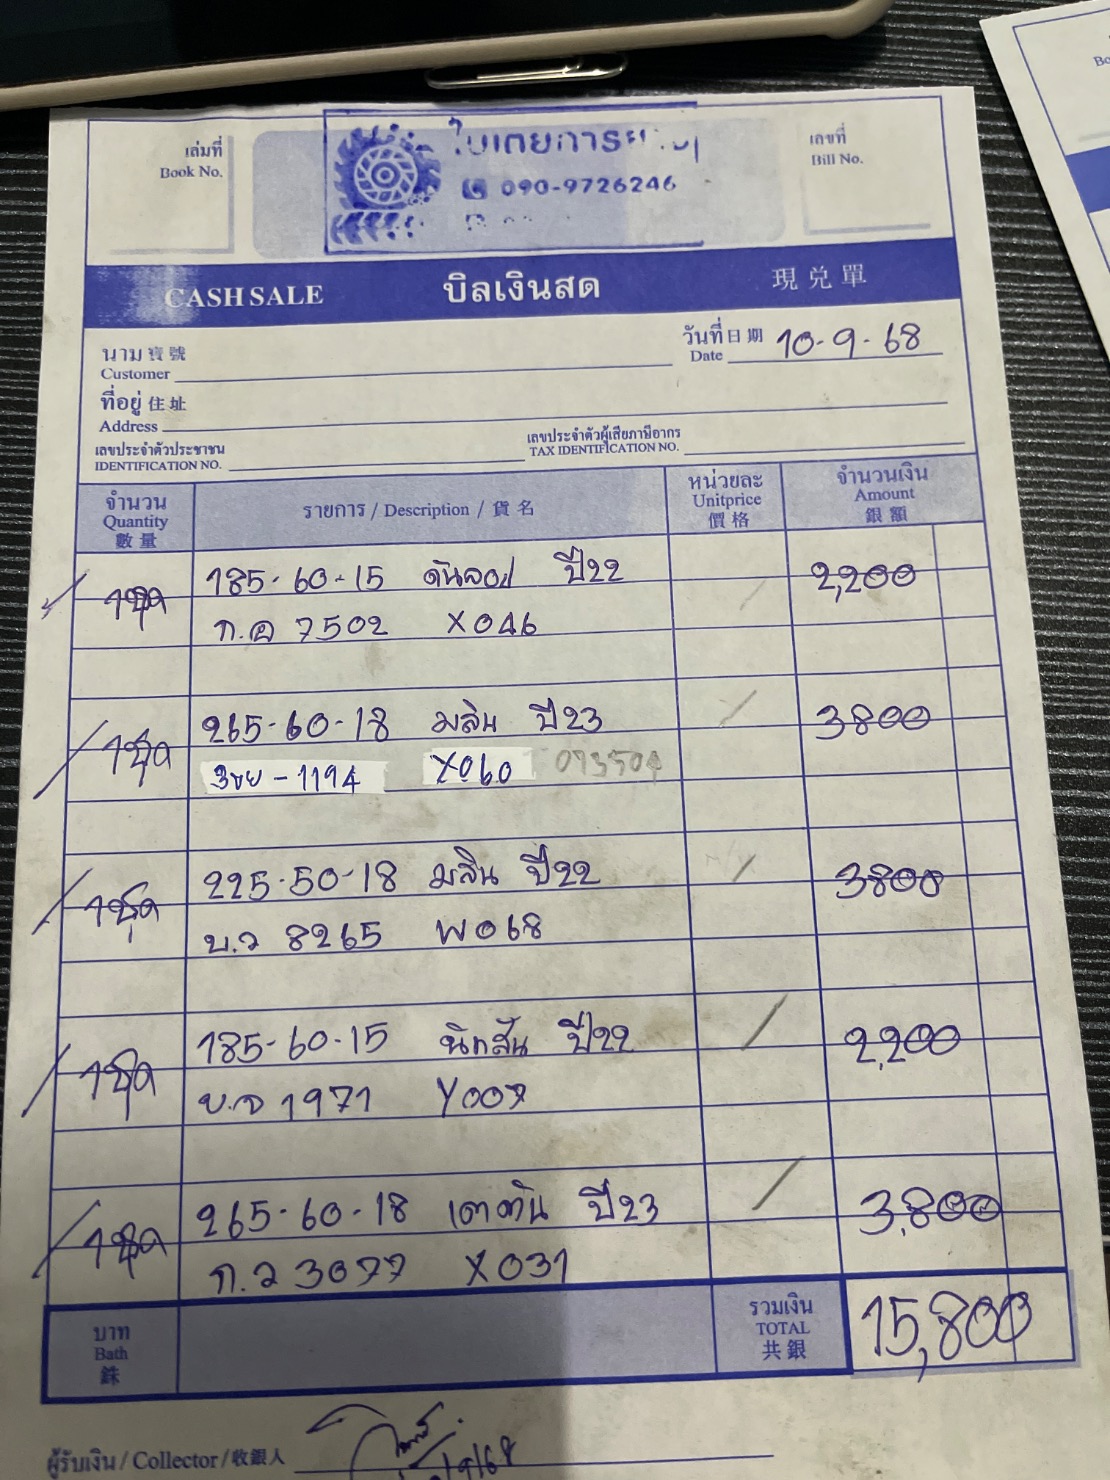 เล่มที่
Book No.
ใบเตยการยาง
090-9726246
เลขที่
Bill No.
CASH SALE บิลเงินสด 現兌單
นาม 寶號
Customer
วันที่ 日期
Date 10-9-68
ที่อยู่ 住址
Address
เลขประจำตัวประชาชน
IDENTIFICATION NO.
เลขประจำตัวผู้เสียภาษีอากร
TAX IDENTIFICATION NO.
จำนวน
Quantity
數量
รายการ / Description / 貨名
หน่วยละ
Unitprice
價格
จำนวนเงิน
Amount
銀額
1ชุด 185-60-15 ดันลอป ปี22 2,200
ก.อ 7502 X046
1ชุด 265-60-18 มลิน ปี23 3800
3ขย - 1194 X060
1ชุด 225-50-18 มลิน ปี22 3800
บ.ว 8265 W068
1ชุด 185-60-15 นิทสัน ปี22 2,200
บ.จ 1971 Y007
1ชุด 265-60-18 เตตัน ปี23 3,800
ก.ว 3077 X031
บาท
Bath
銖
รวมเงิน
TOTAL
共銀
15,800
ผู้รับเงิน / Collector / 收銀人